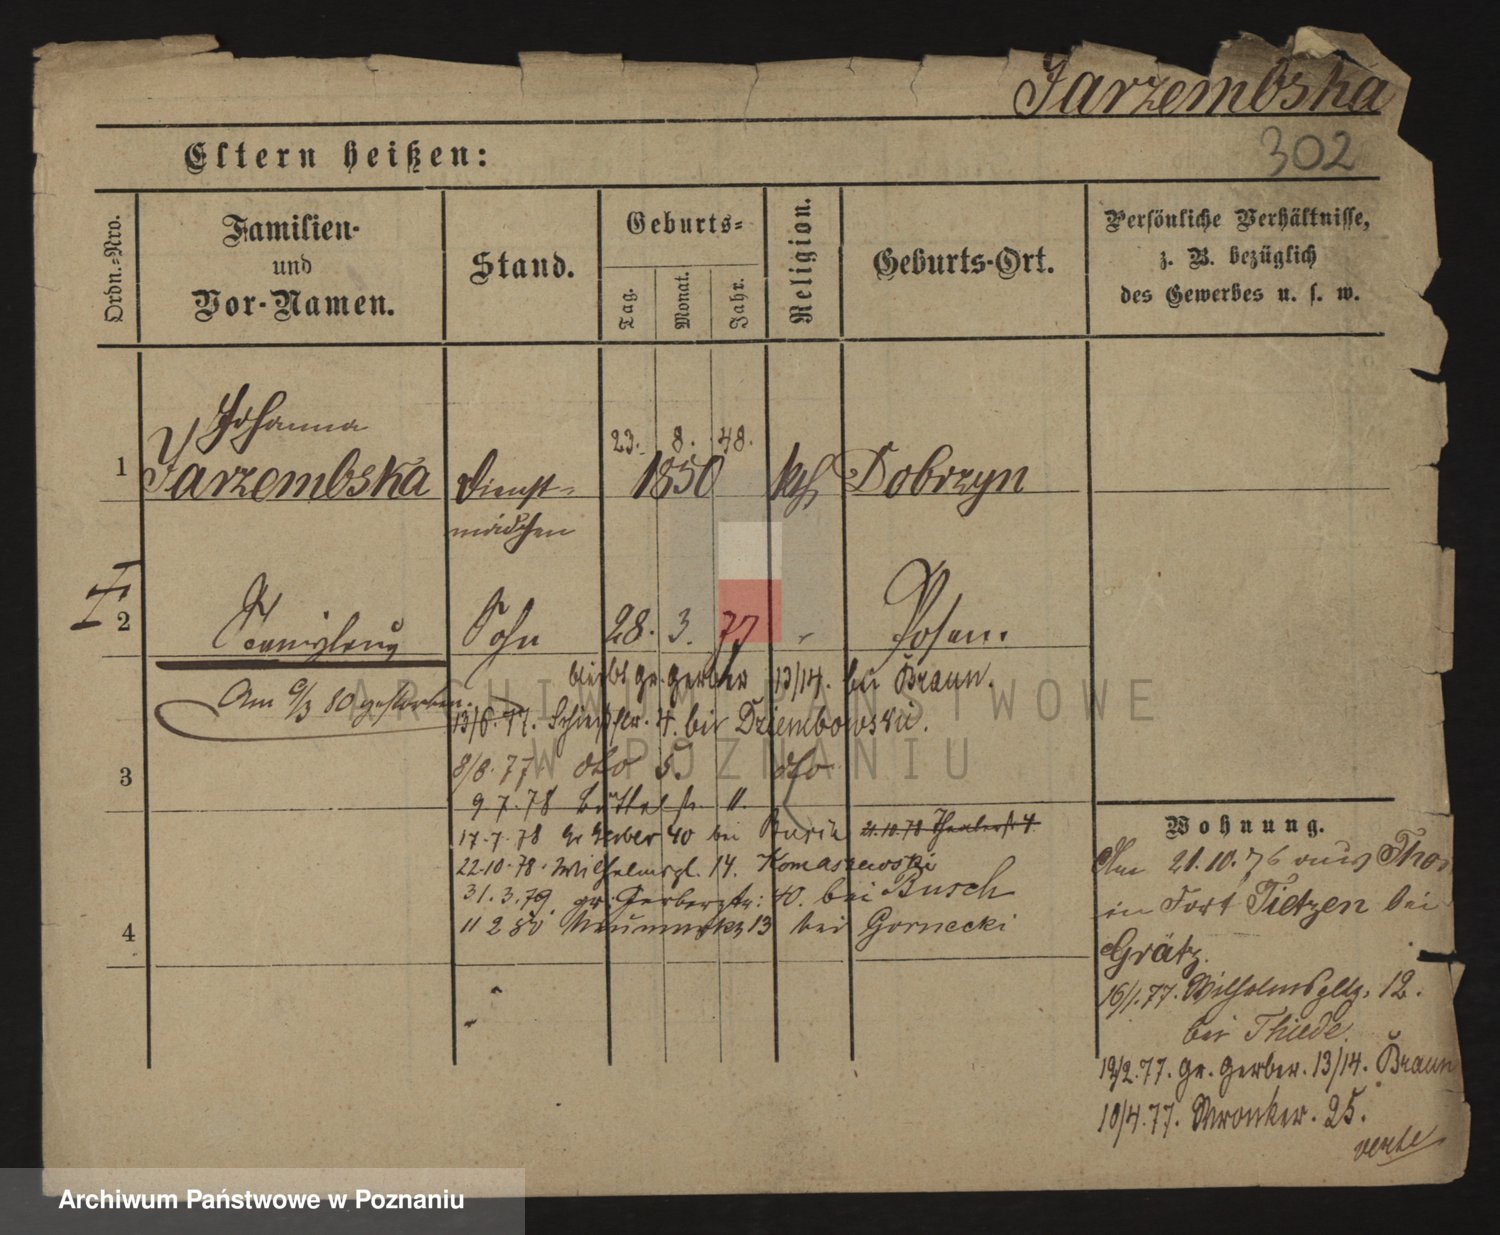 Jarzembska
302
Eltern heißen:
Ordn.-Nro.
Familien-
und
Vor-Namen.
Stand.
Geburts-
Tag.
Monat.
Jahr.
Religion.
Geburts-Ort.
Persönliche Verhältnisse,
z. B. bezüglich
des Gewerbes u. s. w.
Johanna
23. 8. 48.
1 Jarzembska Dienst- 1850 kth Dobrzyn
mädchen
2 Stanislaus Sohn 28. 3. 77 Posen.
bleibt gr. Gerber 13/14. bei Braun.
Am 9/3 80 gestorben.
13/6. 77. Schießstr. 4. bei Dziembowski.
3
8/8. 77 dto 5. dto
9 7. 78 Büttelstr. 11.
17. 7. 78 Gr Gerber 40 bei Busch 21.10.78 Theaterstr. 4
22.10.78. Wilhelmspl. 14. Komaszewski
31. 3. 79 gr. Gerberstr: 40. bei Busch
4
11 2 80 Neumarkt 13 bei Gornecki
Wohnung.
Am 21.10.76 aus Thor
in Fort Tietzen bei
Grätz.
16/1. 77. Wilhelmspltz. 12.
bei Thiede.
19/2. 77. Gr. Gerber. 13/14. Braun
10/4. 77. Wronker. 25.
verte
ARCHIWUM PAŃSTWOWE
W POZNANIU
Archiwum Państwowe w Poznaniu